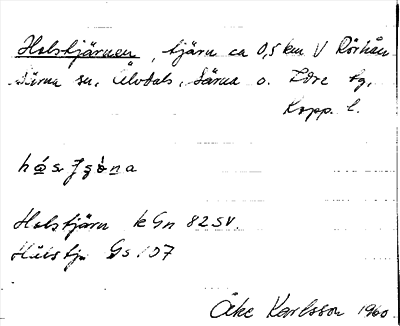 Holstjärnen, tjärn ca 0,5 km V Rörhån
Särna sn, Älvdals, Särna o. Idre tg,
Kopp. l.
Holstjärn k Gn 82 SV.
Hålstj. Gs 107
Åke Karlsson 1960